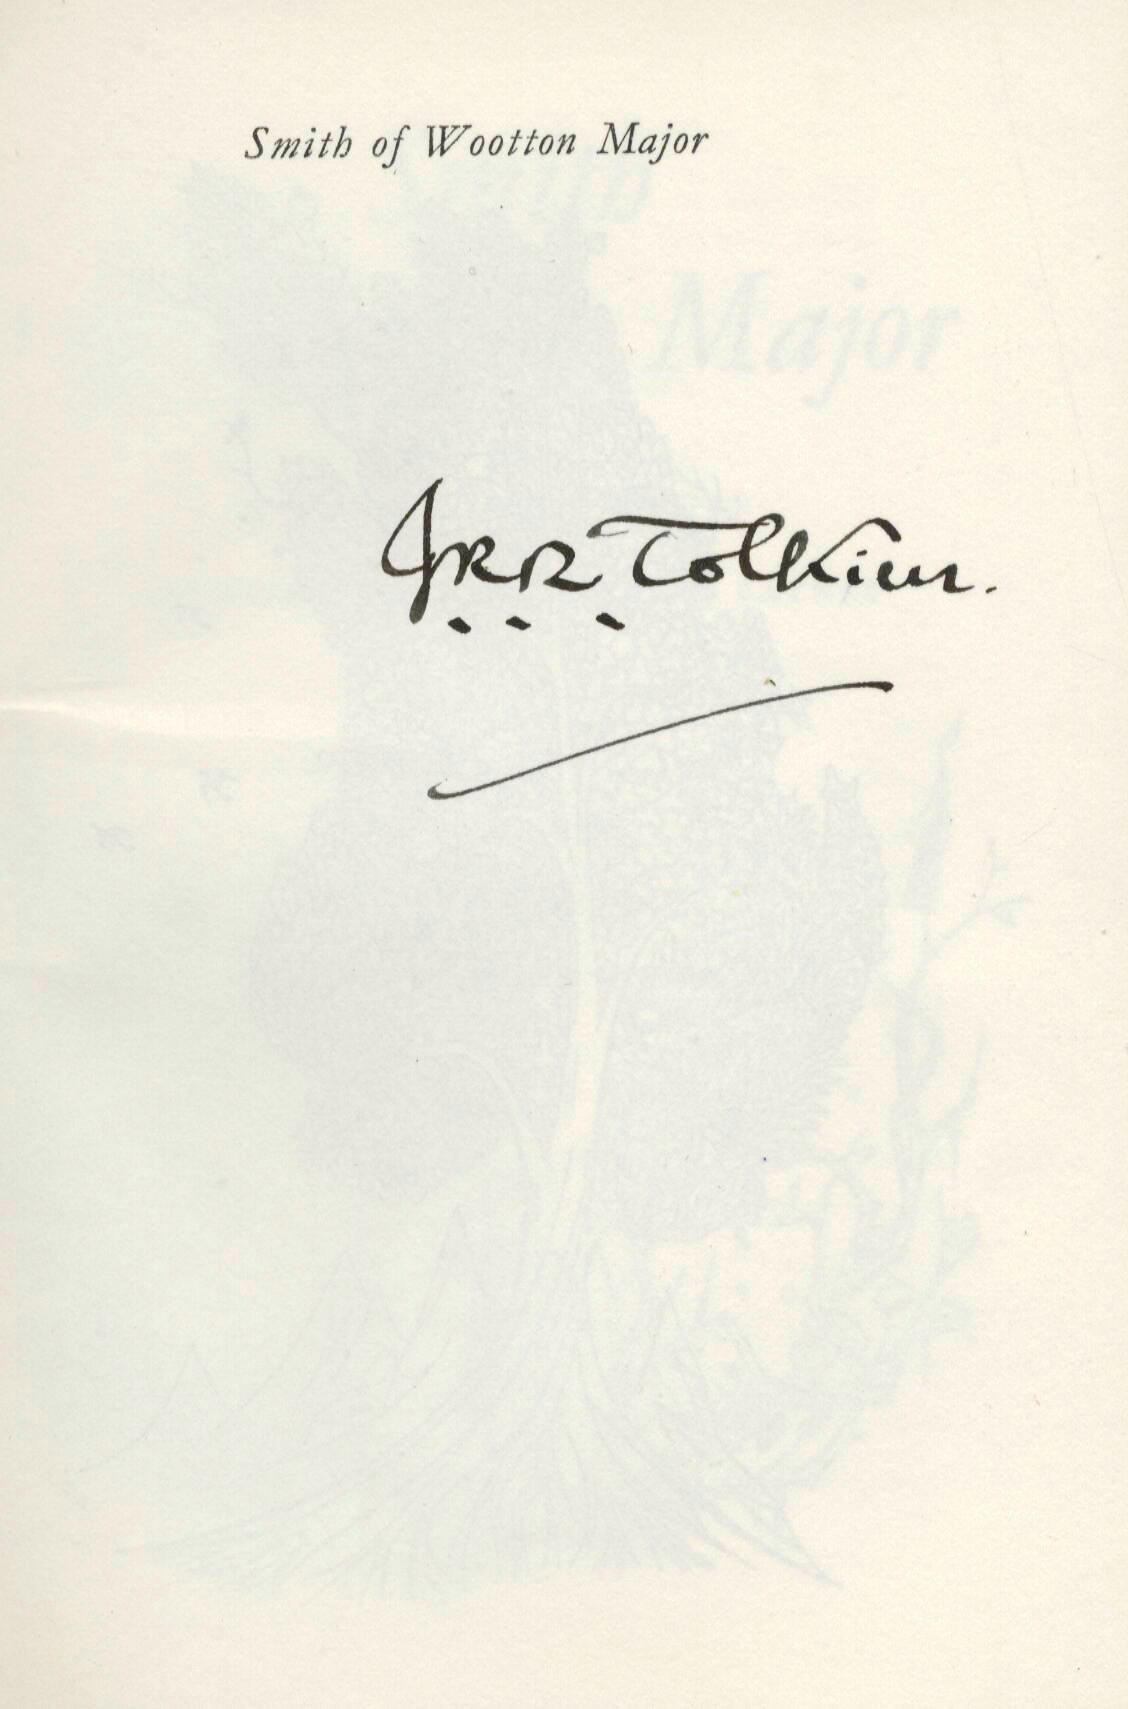 Smith of Wootton Major
Major
JRR Tolkien.